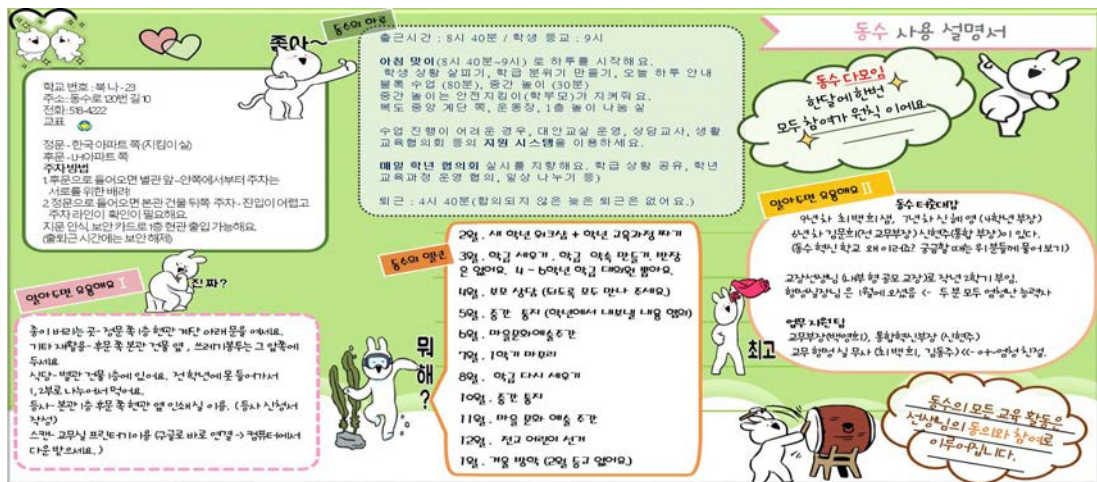 좋아~
학교 번호 : 북 나 - 23
주소 : 동수로 120번 길 10
전화 : 518-4222
교표
정문 - 한국 아파트 쪽 (지킴이실)
후문 - LH아파트 쪽
주차 방법
1. 후문으로 들어오면 별관 앞 - 안쪽에서부터 주차는
서로를 위한 배려!
2. 정문으로 들어오면 본관 건물 뒤쪽 주차 - 진입이 어렵고
주차 라인이 확인이 필요해요.
지문 인식, 보안 카드로 1층 현관 출입 가능해요.
(출퇴근 시간에는 보안 해제)
알아두면 유용해요 I
진짜?
종이 버리는 곳- 정문 쪽 1층 현관 계단 아래 문을 여세요.
기타 재활용- 후문 쪽 본관 건물 옆, 쓰레기봉투는 그 앞쪽에
두세요
식당- 별관 건물 1층에 있어요. 전 학년에 못 들어가서
1, 2부로 나누어서 먹어요.
등사- 본관 1층 후문 쪽 현관 옆 인쇄실 이용. (등사 신청서
작성)
스캔- 교무실 프린터기 이용 (구글로 바로 연결 -> 컴퓨터에서
다운 받으세요.)
동수의 하루
출근시간 : 8시 40분 / 학생 등교 : 9시
아침 맞이(8시 40분~9시) 로 하루를 시작해요.
학생 상황 살피기, 학급 분위기 만들기, 오늘 하루 안내
블록 수업 (80분), 중간 놀이 (30분)
중간 놀이는 안전지킴이(학부모)가 지켜줘요.
복도 중앙 계단 쪽, 운동장, 1층 놀이 나눔 실
수업 진행이 어려운 경우, 대안교실 운영, 상담교사, 생활
교육협의회 등의 지원 시스템을 이용하세요.
매일 학년 협의회 실시를 지향해요. 학급 상황 공유, 학년
교육과정 운영 협의, 일상 나누기 등)
퇴근 : 4시 40분(합의되지 않은 늦은 퇴근은 없어요.)
동수의 일년
뭐
해
?
2월. 새 학년 워크샵 + 학년 교육과정 짜기
3월. 학급 세우기. 학급 약속 만들기, 반장
은 없어요. 4 ~ 6학년 학급 대의원 뽑아요.
4월. 부모 상담 (되도록 모두 만나 주세요.)
5월. 중간 통지 (학년에서 내보낼 내용 협의)
6월. 마을문화예술주간
7월. 1학기 마무리
8월. 학급 다시 세우기
10월. 중간 통지
11월. 마을 문화 예술 주간
12월. 전교 어린이 선거
1월. 겨울 방학 (2월 등교 없어요.)
동수 사용 설명서
동수 다모임
한달에 한번
모두 참여가 원칙 이에요
알아두면 유용해요 II
동수 터줏대감
9년차 최백희샘, 7년차 신혜영 (4학년 부장)
6년차 김문희(전 교무부장) 신현주(통합 부장)이 있다.
(동수 혁신 학교 왜 이러죠? 궁금할 때는 위 분들께 물어보기)
교장선생님 (내부형 공모 교장)로 작년 2학기 부임.
행정실장님은 1월에 오셨음 <- 두 분 모두 엄청난 능력자
업무 지원팀
교무부장(박병희), 통합혁신부장 (신현주)
교무 행정 실무사 (최백희, 김동주) <<- 아~엄청 친절.
최고
동수의 모든 교육 활동은
선생님의 동의와 참여로
이루어집니다.